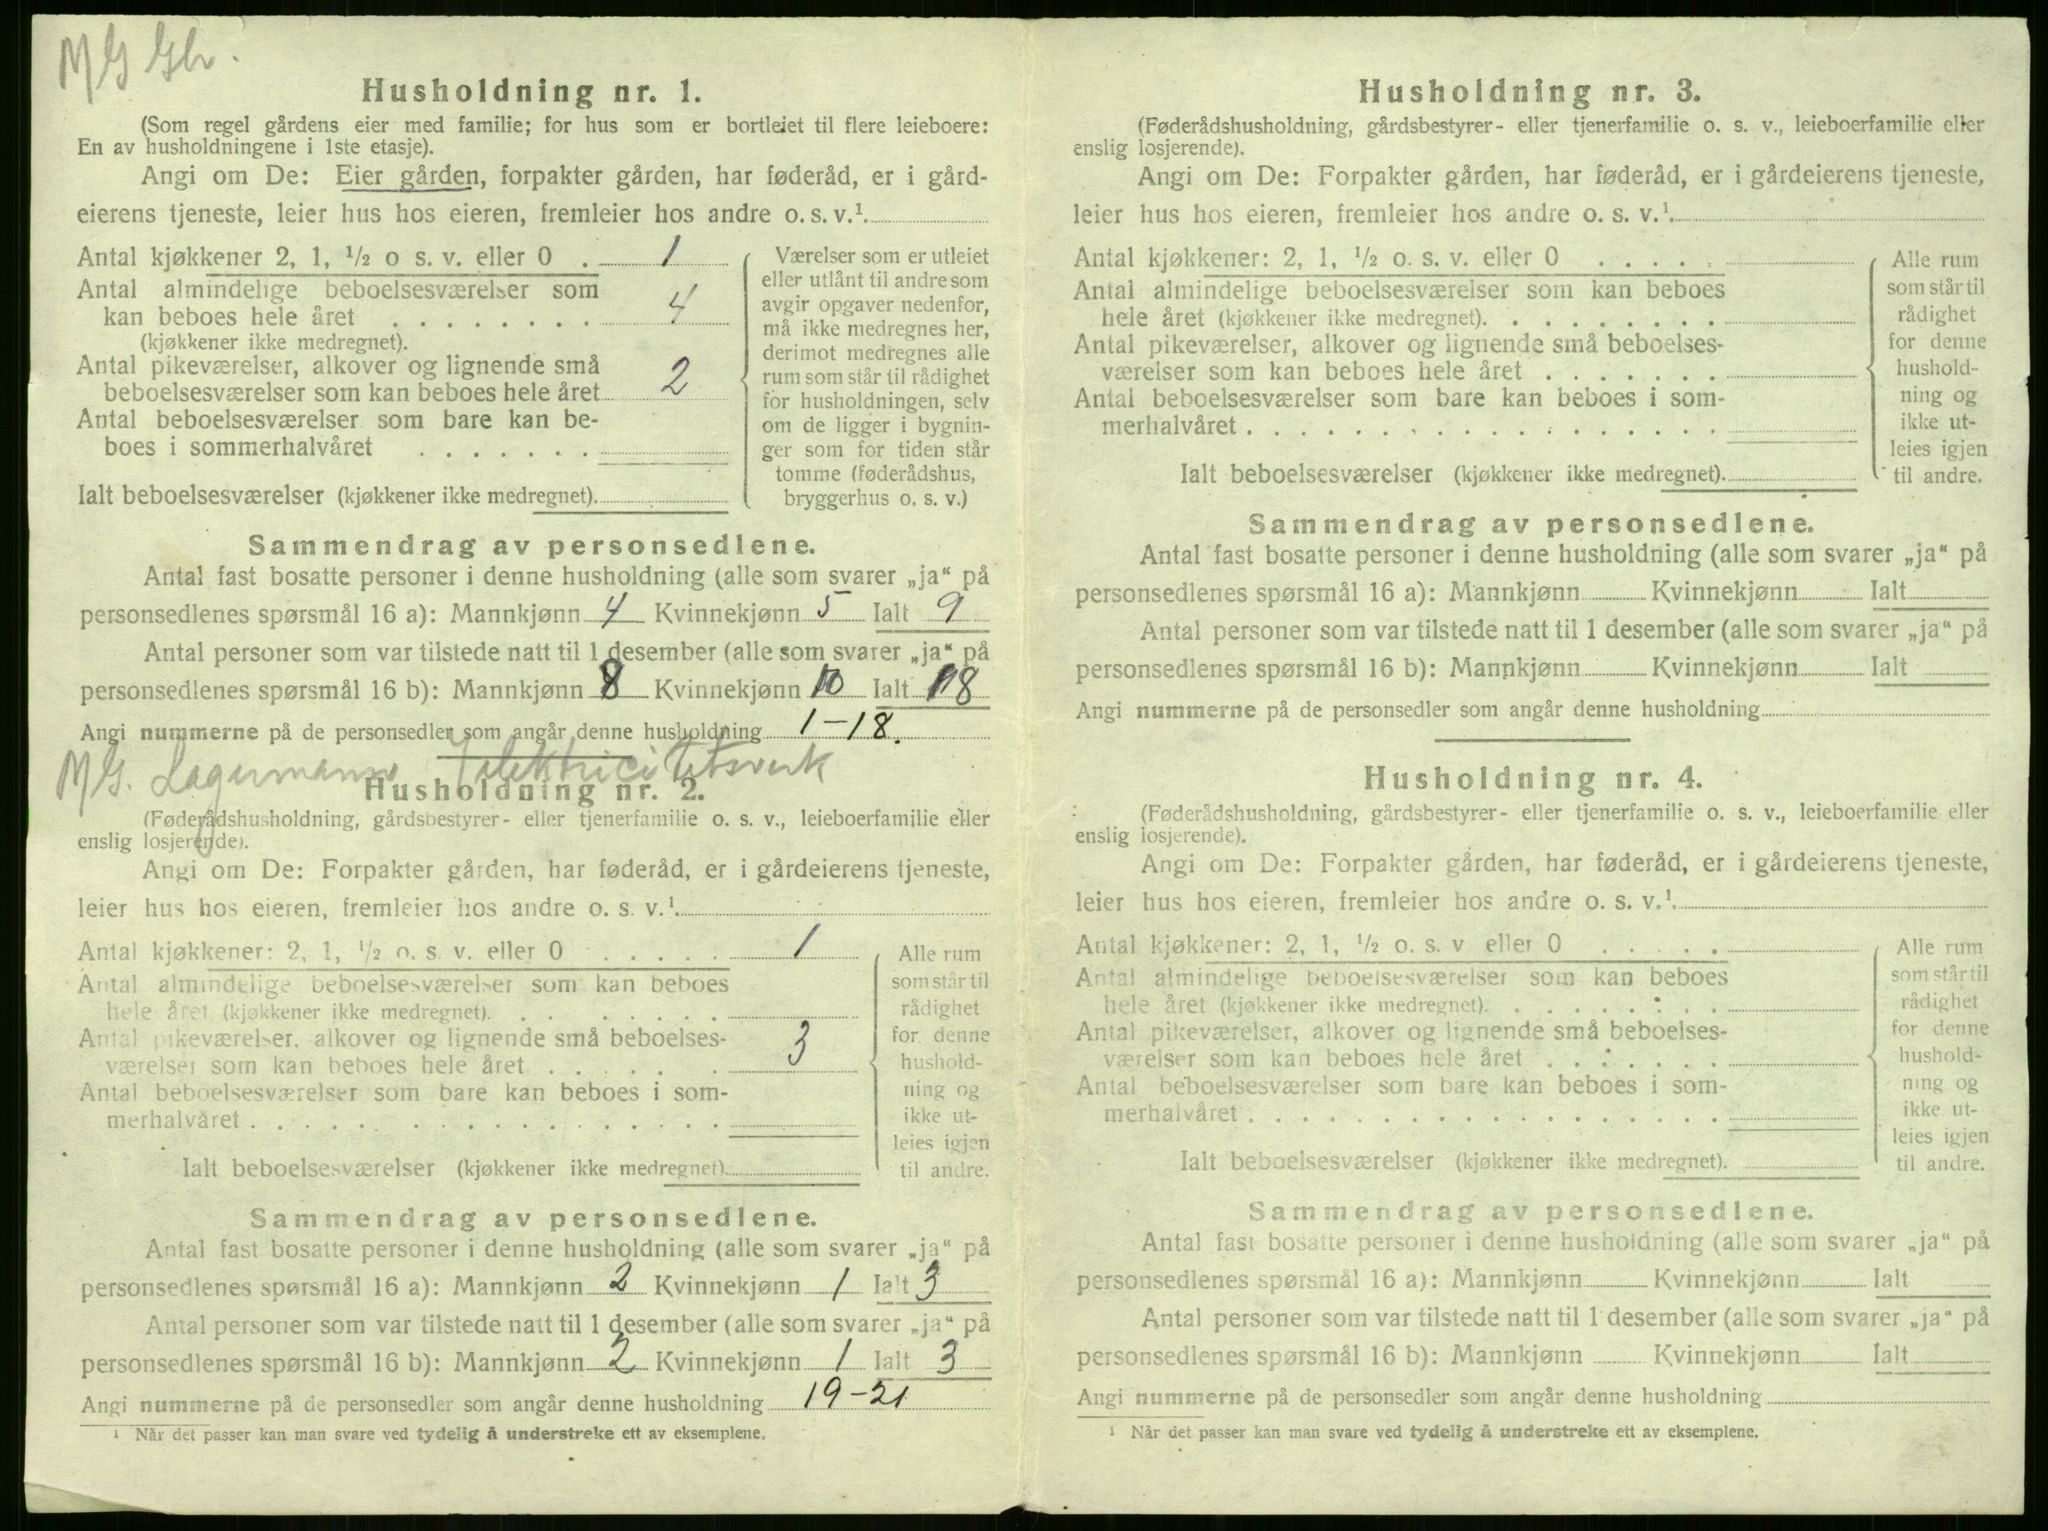 M G Gbr.
Husholdning nr. 1.
(Som regel gårdens eier med familie; for hus som er bortleiet til flere leieboere:
En av husholdningene i 1ste etasje).
Angi om De: Eier gården, forpakter gården, har føderåd, er i gård-
eierens tjeneste, leier hus hos eieren, fremleier hos andre o. s. v.¹.
Antal kjøkkener 2, 1, ½ o s. v. eller 0 . 1
Antal almindelige beboelsesværelser som
kan beboes hele året . . . . . . . . 4
(kjøkkener ikke medregnet).
Antal pikeværelser, alkover og lignende små
beboelsesværelser som kan beboes hele året 2
Antal beboelsesværelser som bare kan be-
boes i sommerhalvåret . . . . . . .
Ialt beboelsesværelser (kjøkkener ikke medregnet).
Værelser som er utleiet
eller utlånt til andre som
avgir opgaver nedenfor,
må ikke medregnes her,
derimot medregnes alle
rum som står til rådighet
for husholdningen, selv
om de ligger i bygnin-
ger som for tiden står
tomme (føderådshus,
bryggerhus o. s. v.)
Sammendrag av personsedlene.
Antal fast bosatte personer i denne husholdning (alle som svarer „ja“ på
personsedlenes spørsmål 16 a): Mannkjønn 4 Kvinnekjønn 5 Ialt 9
Antal personer som var tilstede natt til 1 desember (alle som svarer „ja“ på
personsedlenes spørsmål 16 b): Mannkjønn 8 Kvinnekjønn 10 Ialt 18
Angi nummerne på de personsedler som angår denne husholdning 1–18.
M G. Lagermanns Elektricitetsverk
Husholdning nr. 2.
(Føderådshusholdning, gårdsbestyrer- eller tjenerfamilie o. s. v., leieboerfamilie eller
enslig losjerende).
Angi om De: Forpakter gården, har føderåd, er i gårdeierens tjeneste,
leier hus hos eieren, fremleier hos andre o. s. v.¹.
Antal kjøkkener: 2, 1, ½ o. s. v. eller 0 . . . . . 1
Antal almindelige beboelsesværelser som kan beboes
hele året (kjøkkener ikke medregnet). . . . . . . .
Antal pikeværelser, alkover og lignende små beboelses-
værelser som kan beboes hele året . . . . . . . 3
Antal beboelsesværelser som bare kan beboes i som-
merhalvåret . . . . . . . . . . . . . . . . . .
Ialt beboelsesværelser (kjøkkener ikke medregnet)
Alle rum
som står til
rådighet
for denne
hushold-
ning og
ikke ut-
leies igjen
til andre.
Sammendrag av personsedlene.
Antal fast bosatte personer i denne husholdning (alle som svarer „ja“ på
personsedlenes spørsmål 16 a): Mannkjønn 2 Kvinnekjønn 1 Ialt 3
Antal personer som var tilstede natt til 1 desember (alle som svarer „ja“ på
personsedlenes spørsmål 16 b): Mannkjønn 2 Kvinnekjønn 1 Ialt 3
Angi nummerne på de personsedler som angår denne husholdning 19–21
¹ Når det passer kan man svare ved tydelig å understreke ett av eksemplene.
Husholdning nr. 3.
(Føderådshusholdning, gårdsbestyrer- eller tjenerfamilie o. s. v., leieboerfamilie eller
enslig losjerende).
Angi om De: Forpakter gården, har føderåd, er i gårdeierens tjeneste,
leier hus hos eieren, fremleier hos andre o. s. v.¹.
Antal kjøkkener: 2, 1, ½ o. s. v. eller 0 . . . . .
Antal almindelige beboelsesværelser som kan beboes
hele året (kjøkkener ikke medregnet). . . . . . . . .
Antal pikeværelser, alkover og lignende små beboelses-
værelser som kan beboes hele året . . . . . . .
Antal beboelsesværelser som bare kan beboes i som-
merhalvåret . . . . . . . . . . . . . . . . . .
Ialt beboelsesværelser (kjøkkener ikke medregnet).
Alle rum
som står til
rådighet
for denne
hushold-
ning og
ikke ut-
leies igjen
til andre.
Sammendrag av personsedlene.
Antal fast bosatte personer i denne husholdning (alle som svarer „ja“ på
personsedlenes spørsmål 16 a): Mannkjønn Kvinnekjønn Ialt
Antal personer som var tilstede natt til 1 desember (alle som svarer „ja“ på
personsedlenes spørsmål 16 b): Mannkjønn Kvinnekjønn Ialt
Angi nummerne på de personsedler som angår denne husholdning
Husholdning nr. 4.
(Føderådshusholdning, gårdsbestyrer- eller tjenerfamilie o. s. v., leieboerfamilie eller
enslig losjerende).
Angi om De: Forpakter gården, har føderåd, er i gårdeierens tjeneste,
leier hus hos eieren, fremleier hos andre o. s. v.¹.
Antal kjøkkener: 2, 1, ½ o. s. v eller 0 . . . . .
Antal almindelige beboelsesværelser som kan beboes
hele året (kjøkkener ikke medregnet). . . . . . . . .
Antal pikeværelser, alkover og lignende små beboelses-
værelser som kan beboes hele året . . . . . . .
Antal beboelsesværelser som bare kan beboes i som-
merhalvåret . . . . . . . . . . . . . . . . . .
Ialt beboelsesværelser (kjøkkener ikke medregnet).
Alle rum
som står til
rådighet
for denne
hushold-
ning og
ikke ut-
leies igjen
til andre.
Sammendrag av personsedlene.
Antal fast bosatte personer i denne husholdning (alle som svarer „ja“ på
personsedlenes spørsmål 16 a): Mannkjønn Kvinnekjønn Ialt
Antal personer som var tilstede natt til 1 desember (alle som svarer „ja“ på
personsedlenes spørsmål 16 b): Mannkjønn Kvinnekjønn Ialt
Angi nummerne på de personsedler som angår denne husholdning
¹ Når det passer kan man svare ved tydelig å understreke ett av eksemplene.